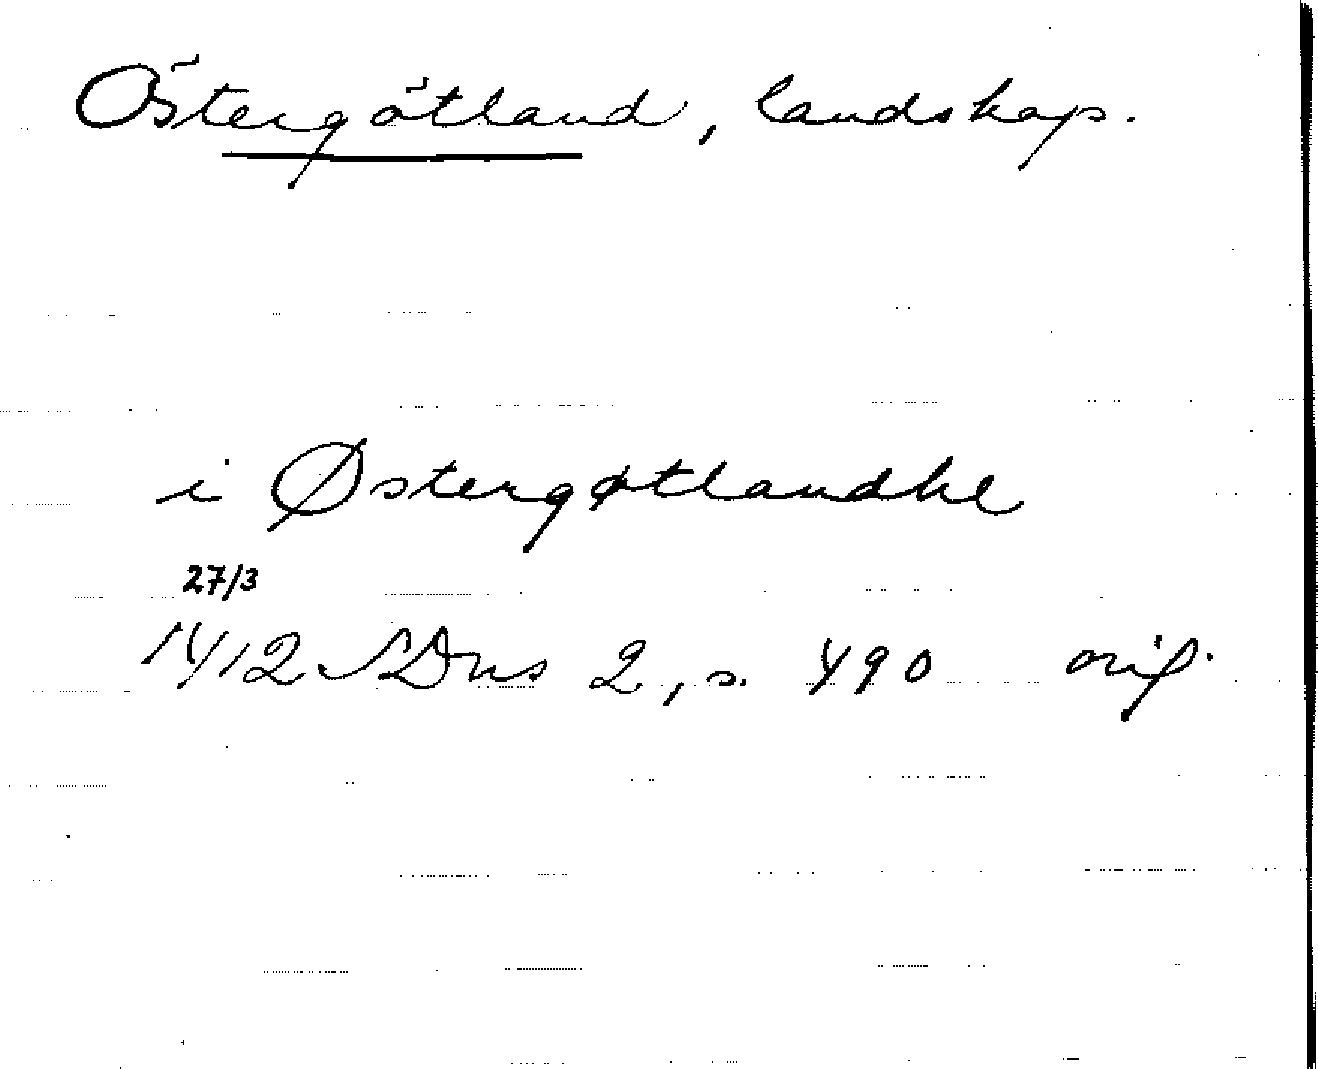 Östergötland, landskap.
i Østergøtlandhe
27/3
1412 SDns 2, s. 490 orig.